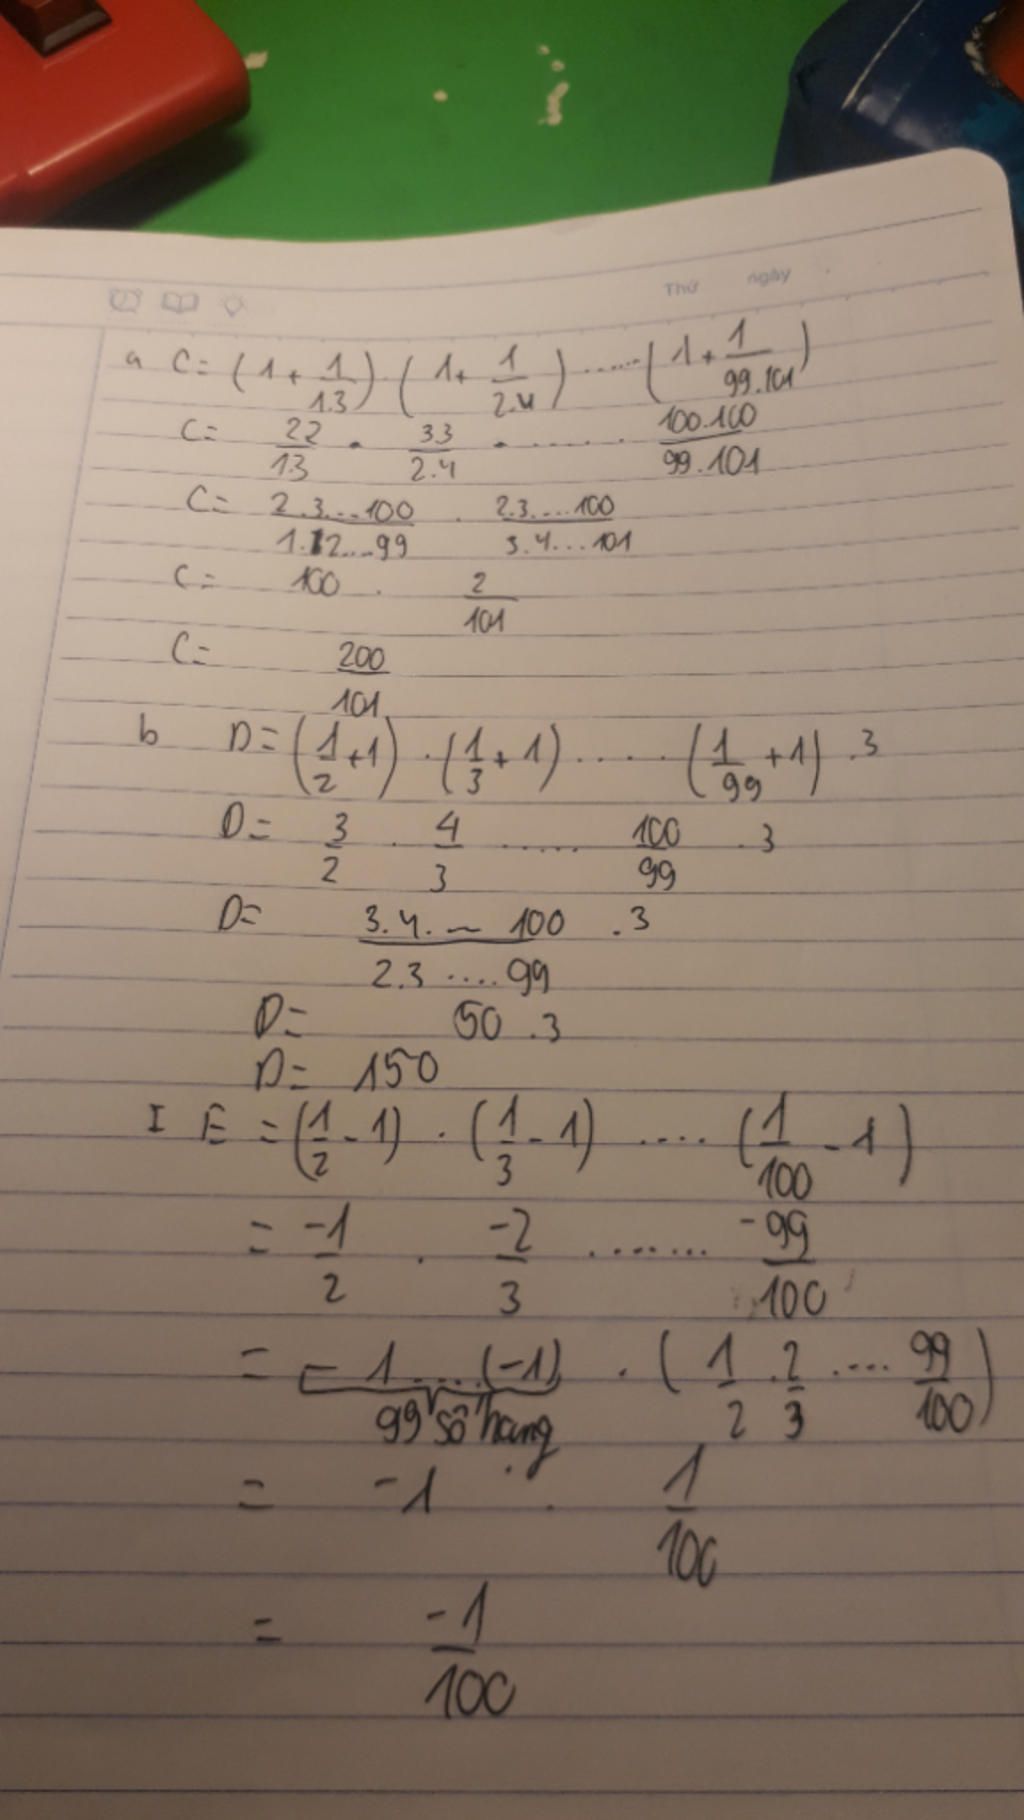 Thứ ngày
a C = (1 + 1/1.3) . (1 + 1/2.4) ...... (1 + 1/99.101)
C = 22/13 . 33/2.4 . ...... . 100.100/99.101
C = 2.3...100/1.2...99 . 2.3....100/3.4...101
C = 100 . 2/101
C = 200/101
b D = (1/2 + 1) . (1/3 + 1) . .... (1/99 + 1) . 3
D = 3/2 . 4/3 ..... 100/99 . 3
D = 3.4. ... 100/2.3 .... 99 . 3
D = 50 . 3
D = 150
I E = (1/2 - 1) . (1/3 - 1) .... (1/100 - 1)
= -1/2 . -2/3 ....... -99/100
= -1....(-1) . (1/2 . 2/3 .... 99/100)
99 số hạng
= -1 . 1/100
= -1/100